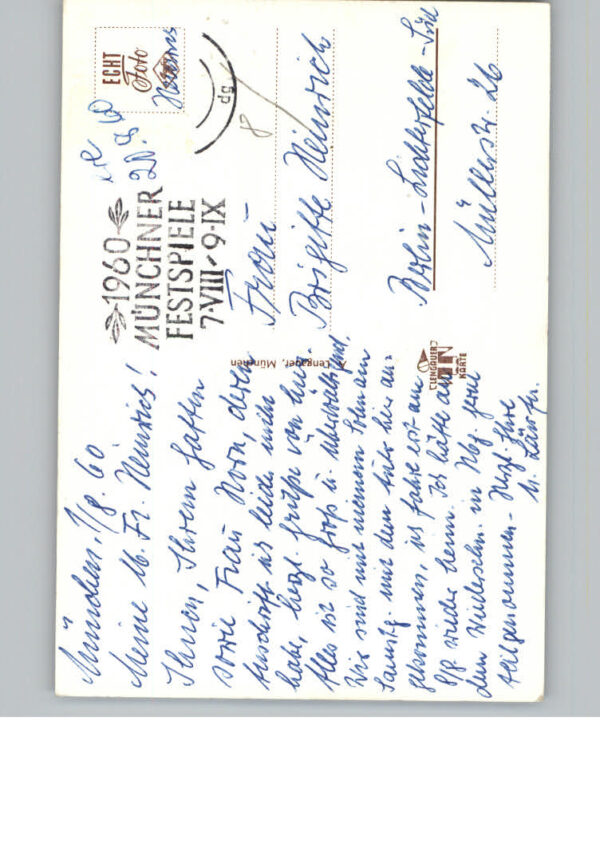 München, 1/8. 60
Meine lb. Fr. Heinrich!
Ihnen, Ihrem Gatten
sowie Frau Horn, deren
Anschrift ich leider nicht
habe, herzl. Grüße von hier.
Alles ist so groß u. überwältigend.
Wir sind mit meinem Sohn am
Samstg. mit dem Auto hier an-
gekommen, ich fahre erst am
wieder heim. Ich hätte an
dem Wiedersehn in Hbg. gern
teilgenommen - Herzl. Ihre
1960
MÜNCHNER
FESTSPIELE
7·VIII - 9·IX
ECHT
Foto
20. 8
gp
8
Frau
Brigitte Heinrich
Berlin-Lichterfelde-Süd
Müllerstr. 26
Lengauer, München
LENGAUER
KARTE